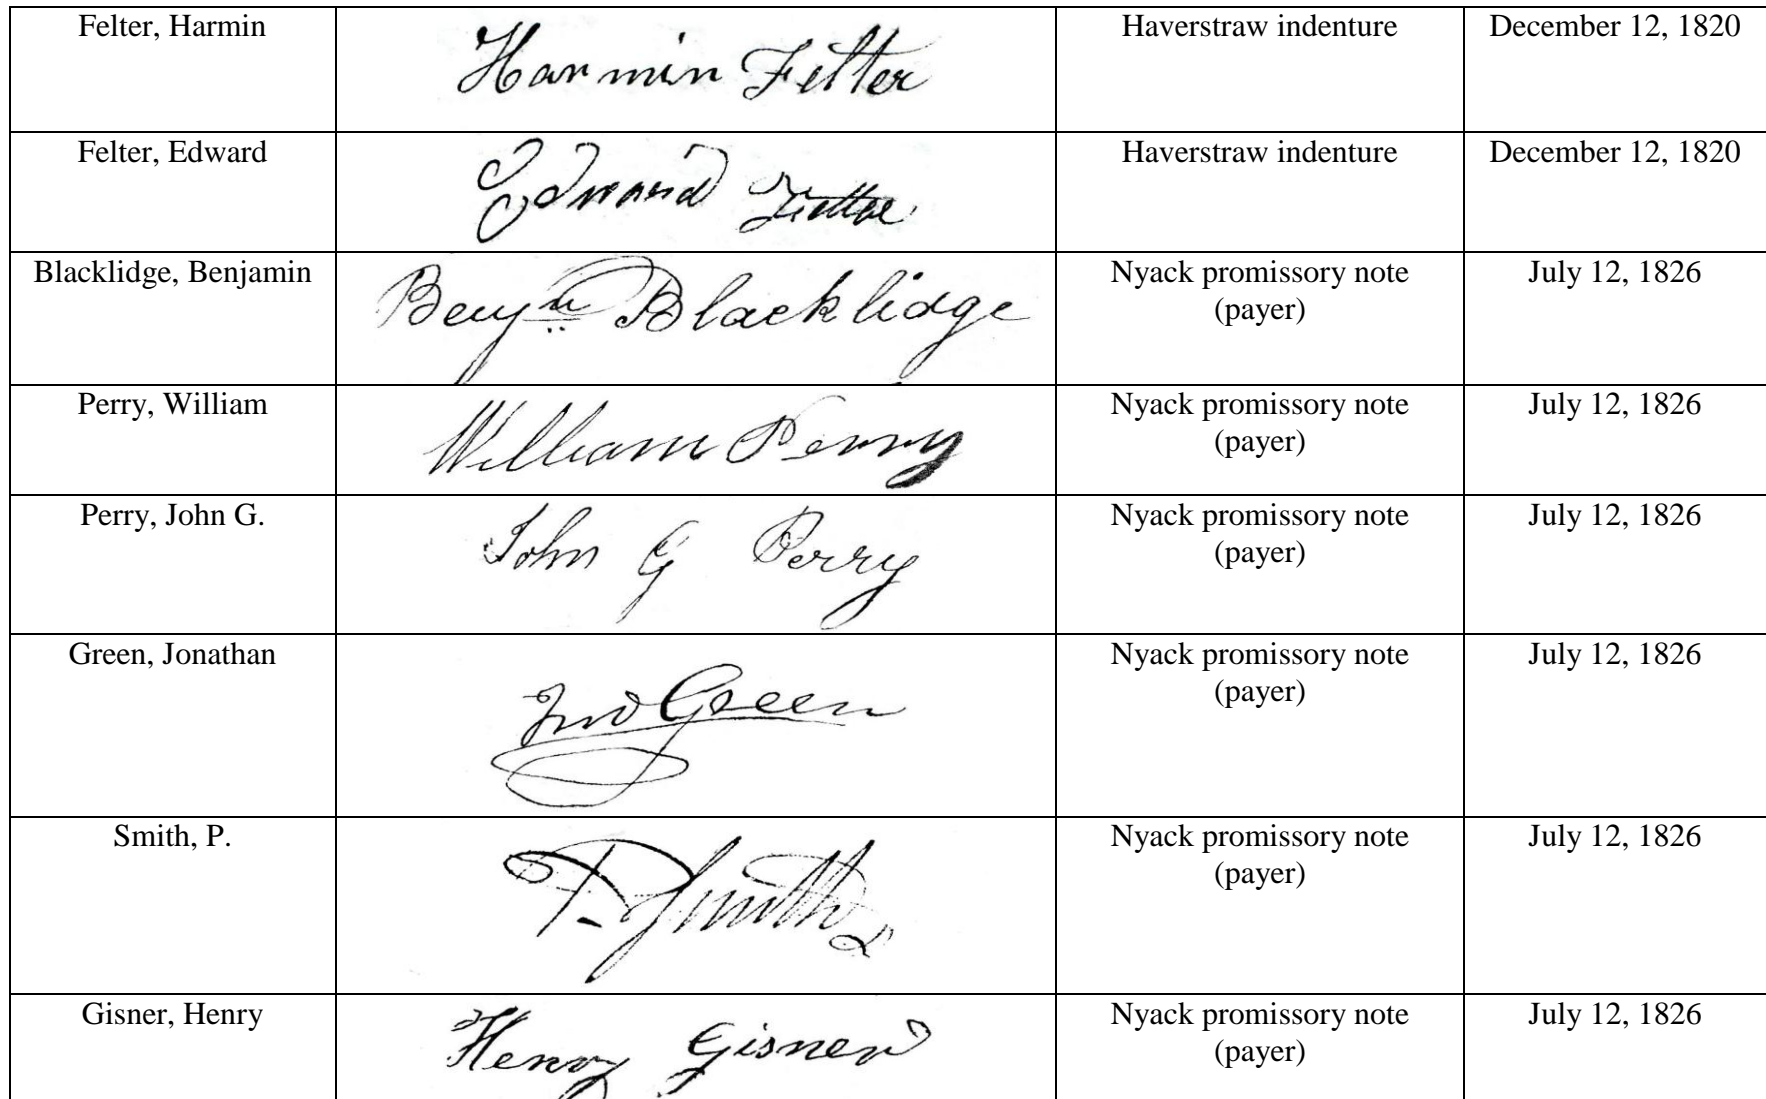 Felter, Harmin
Harmin Felter
Haverstraw indenture
December 12, 1820
Felter, Edward
Edward Felter
Haverstraw indenture
December 12, 1820
Blacklidge, Benjamin
Benjn Blacklidge
Nyack promissory note
(payer)
July 12, 1826
Perry, William
William Perry
Nyack promissory note
(payer)
July 12, 1826
Perry, John G.
John G Perry
Nyack promissory note
(payer)
July 12, 1826
Green, Jonathan
Jno Green
Nyack promissory note
(payer)
July 12, 1826
Smith, P.
P. Smith
Nyack promissory note
(payer)
July 12, 1826
Gisner, Henry
Henry Gisner
Nyack promissory note
(payer)
July 12, 1826